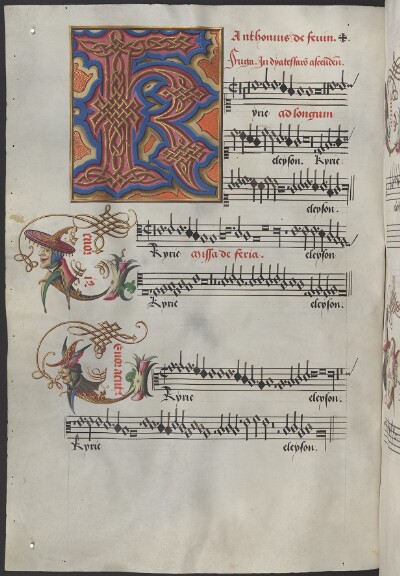 Anthonius de feuin.
Fuga. In dyatessaro ascendendi.
K yrie ad longum
eleyson. Kyrie
eleyson.
Tenor
Kyrie Missa de feria. eleyson
Kyrie eleyson.
Kyrie eleyson.
Kyrie eleyson.